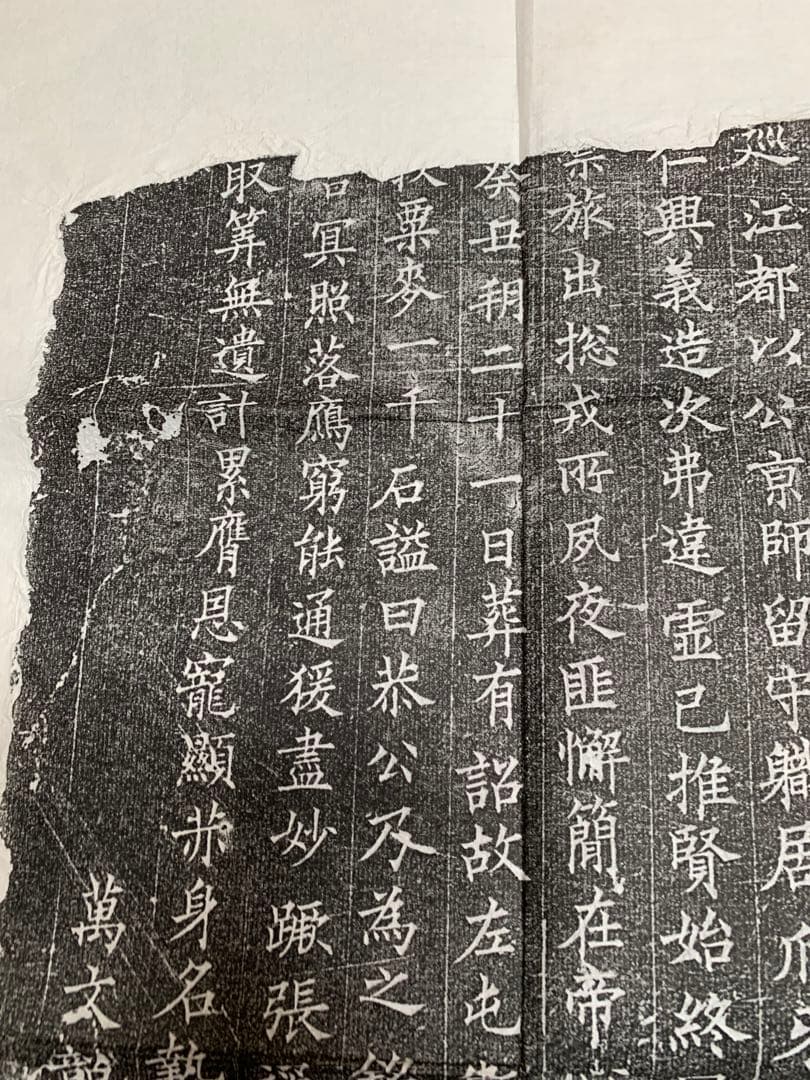 江都以公京師留守職居
仁興義造次弗違虛己推賢始終
旅出捴戎所夙夜匪懈簡在帝
癸丑朔二十一日葬有詔故左屯
粟麥一千石謚曰恭公乃為之銘
冥照落鴈窮能通猨盡妙蹶張
取筭無遺計累膺恩寵顯赤身名
萬文韻